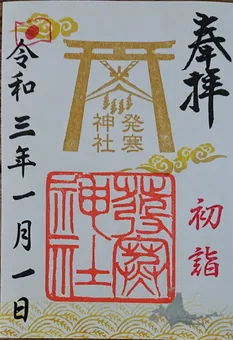 奉拝
初詣
発寒
神社
発寒
神社
令和三年一月一日